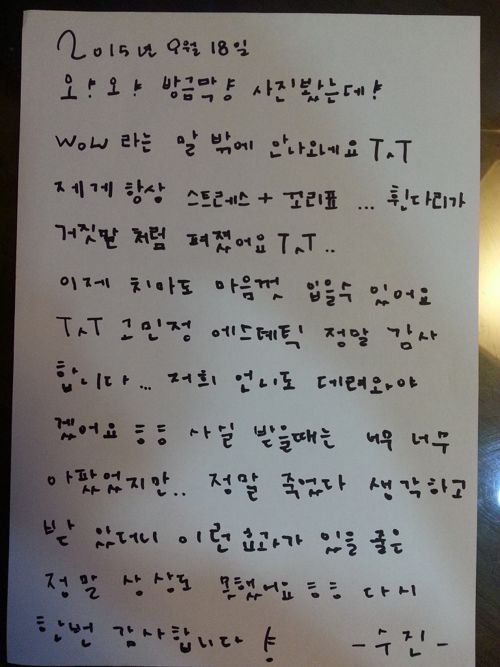 2015년 9월 18일
와! 와! 방금막 사진봤는데!
WOW 라는 말 밖에 안나와네요 T^T
제게 항상 스트레스 + 꼬리표 ... 휜다리가
거짓말 처럼 펴졌어요 T^T..
이제 치마도 마음껏 입을수 있어요
T^T 고민정 에스테틱 정말 감사
합니다... 저희 언니도 데려와야
겠어요 ㅎㅎ 사실 받을때는 너무 너무
아팠었지만.. 정말 죽었다 생각하고
받았더니 이런 효과가 있을 줄은
정말 상상도 못했어요 ㅎㅎ 다시
한번 감사합니다!
-수진-